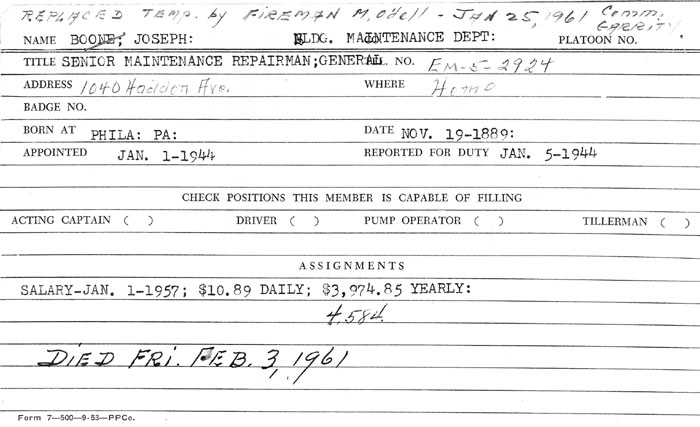 REPLACED TEMP. by FIREMAN M. Odell - JAN 25, 1961 Comm. GARRITY
NAME BOONE, JOSEPH: BLDG. MAINTENANCE DEPT: PLATOON NO.
TITLE SENIOR MAINTENANCE REPAIRMAN;GENERAL. NO. EM-5-2924
ADDRESS 1040 Haddon Ave. WHERE Home
BADGE NO.
BORN AT PHILA: PA: DATE NOV. 19-1889:
APPOINTED JAN. 1-1944 REPORTED FOR DUTY JAN. 5-1944
CHECK POSITIONS THIS MEMBER IS CAPABLE OF FILLING
ACTING CAPTAIN ( ) DRIVER ( ) PUMP OPERATOR ( ) TILLERMAN ( )
ASSIGNMENTS
SALARY-JAN. 1-1957; $10.89 DAILY; $3,974.85 YEARLY:
4,584.
DIED FRI. FEB. 3, 1961
Form 7—500—9-53—PPCo.